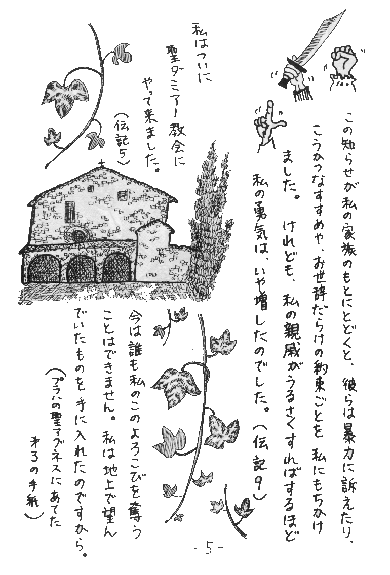 この知らせが私の家族のもとにとどくと、彼らは暴力に訴えたり、
こうかつなすすめや、お世辞だらけの約束ごとを私にもちかけ
ました。けれども、私の親戚がうるさくすればするほど
私の勇気は、いや増したのでした。(伝記9)
私はついに
聖ダミアノ教会に
やって来ました。
(伝記5)
今は誰も私のこのよろこびを奪う
ことはできません。私は地上で望ん
でいたものを手に入れたのですから。
(プラハの聖アグネスにあてた
第3の手紙)
-5-